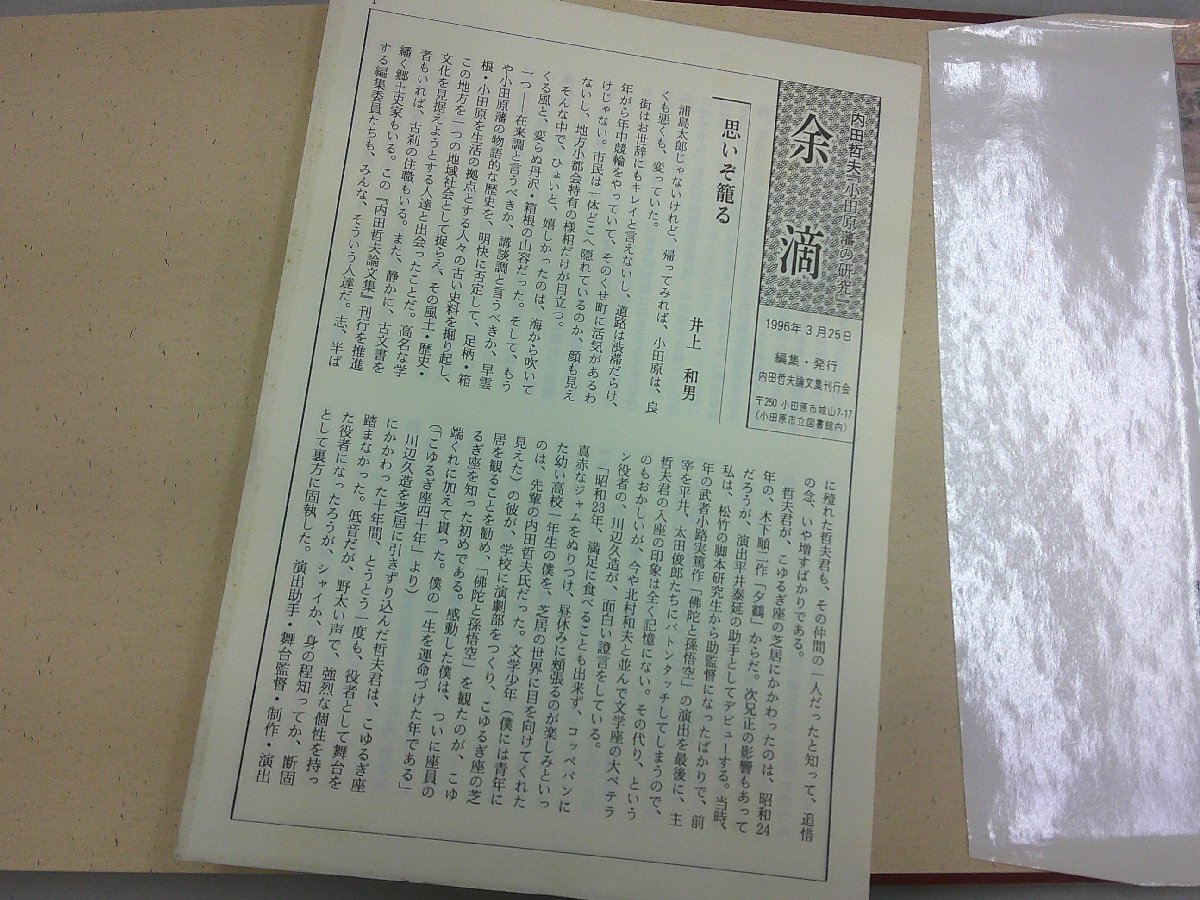 1
内田哲夫『小田原藩の研究』
余滴
1996年3月25日
編集・発行
内田哲夫論文集刊行会
〒250 小田原市城山7-17
(小田原市立図書館内)
思いぞ籠る
井上 和男
浦島太郎じゃないけれど、帰ってみれば、小田原は、良
くも悪くも、変っていた。
街はお世辞にもキレイと言えないし、道路は渋滞だらけ、
年がら年中競輪をやっていて、そのくせ町に活気があるわ
けじゃない。市民は一体どこへ隠れているのか、顔も見え
ないし、地方小都会特有の様相だけが目立つ。
そんな中で、ひょいと、嬉しかったのは、海から吹いて
くる風と、変らぬ丹沢・箱根の山容だった。そして、もう
一つ――在来調と言うべきか、講談調と言うべきか、早雲
や小田原藩の物語的な歴史を、明快に否定して、足柄・箱
根・小田原を生活の拠点とする人々の古い史料を掘り起し、
この地方を一つの地域社会として捉らえ、その風土・歴史・
文化を見据えようとする人達と出会ったことだ。高名な学
者もいれば、古刹の住職もいる。また、静かに、古文書を
繙く郷土史家もいる。この『内田哲夫論文集』刊行を推進
する編集委員たちも、みんな、そういう人達だ。志、半ば
に殪れた哲夫君も、その仲間の一人だったと知って、追惜
の念、いや増すばかりである。
哲夫君が、こゆるぎ座の芝居にかかわったのは、昭和24
年の、木下順二作「夕鶴」からだ。次兄正の影響もあって
だろうが、演出平井泰延の助手としてデビューする。当時、
私は、松竹の脚本研究生から助監督になったばかりで、前
年の武者小路実篤作「佛陀と孫悟空」の演出を最後に、主
宰を平井、太田俊郎たちにバトンタッチしてしまうので、
哲夫君の入座の印象は全く記憶にない。その代り、という
のもおかしいが、今や北村和夫と並んで文学座の大ベテラ
ン役者の、川辺久造が、面白い證言をしている。
「昭和23年、満足に食べることも出来ず、コッペパンに
真赤なジャムをぬりつけ、昼休みに頬張るのが楽しみといっ
た幼い高校一年生の僕を、芝居の世界に目を向けてくれた
のは、先輩の内田哲夫氏だった。文学少年（僕には青年に
見えた）の彼が、学校に演劇部をつくり、こゆるぎ座の芝
居を観ることを勧め、「佛陀と孫悟空」を観たのが、こゆ
るぎ座を知った初めである。感動した僕は、ついに座員の
端くれに加えて貰った。僕の一生を運命づけた年である」
（「こゆるぎ座四十年」より）
川辺久造を芝居に引きずり込んだ哲夫君は、こゆるぎ座
にかかわった十年間、とうとう一度も、役者として舞台を
踏まなかった。低音だが、野太い声で、強烈な個性を持っ
た役者になったろうが、シャイか、身の程知ってか、断固
として裏方に固執した。演出助手・舞台監督・制作・演出